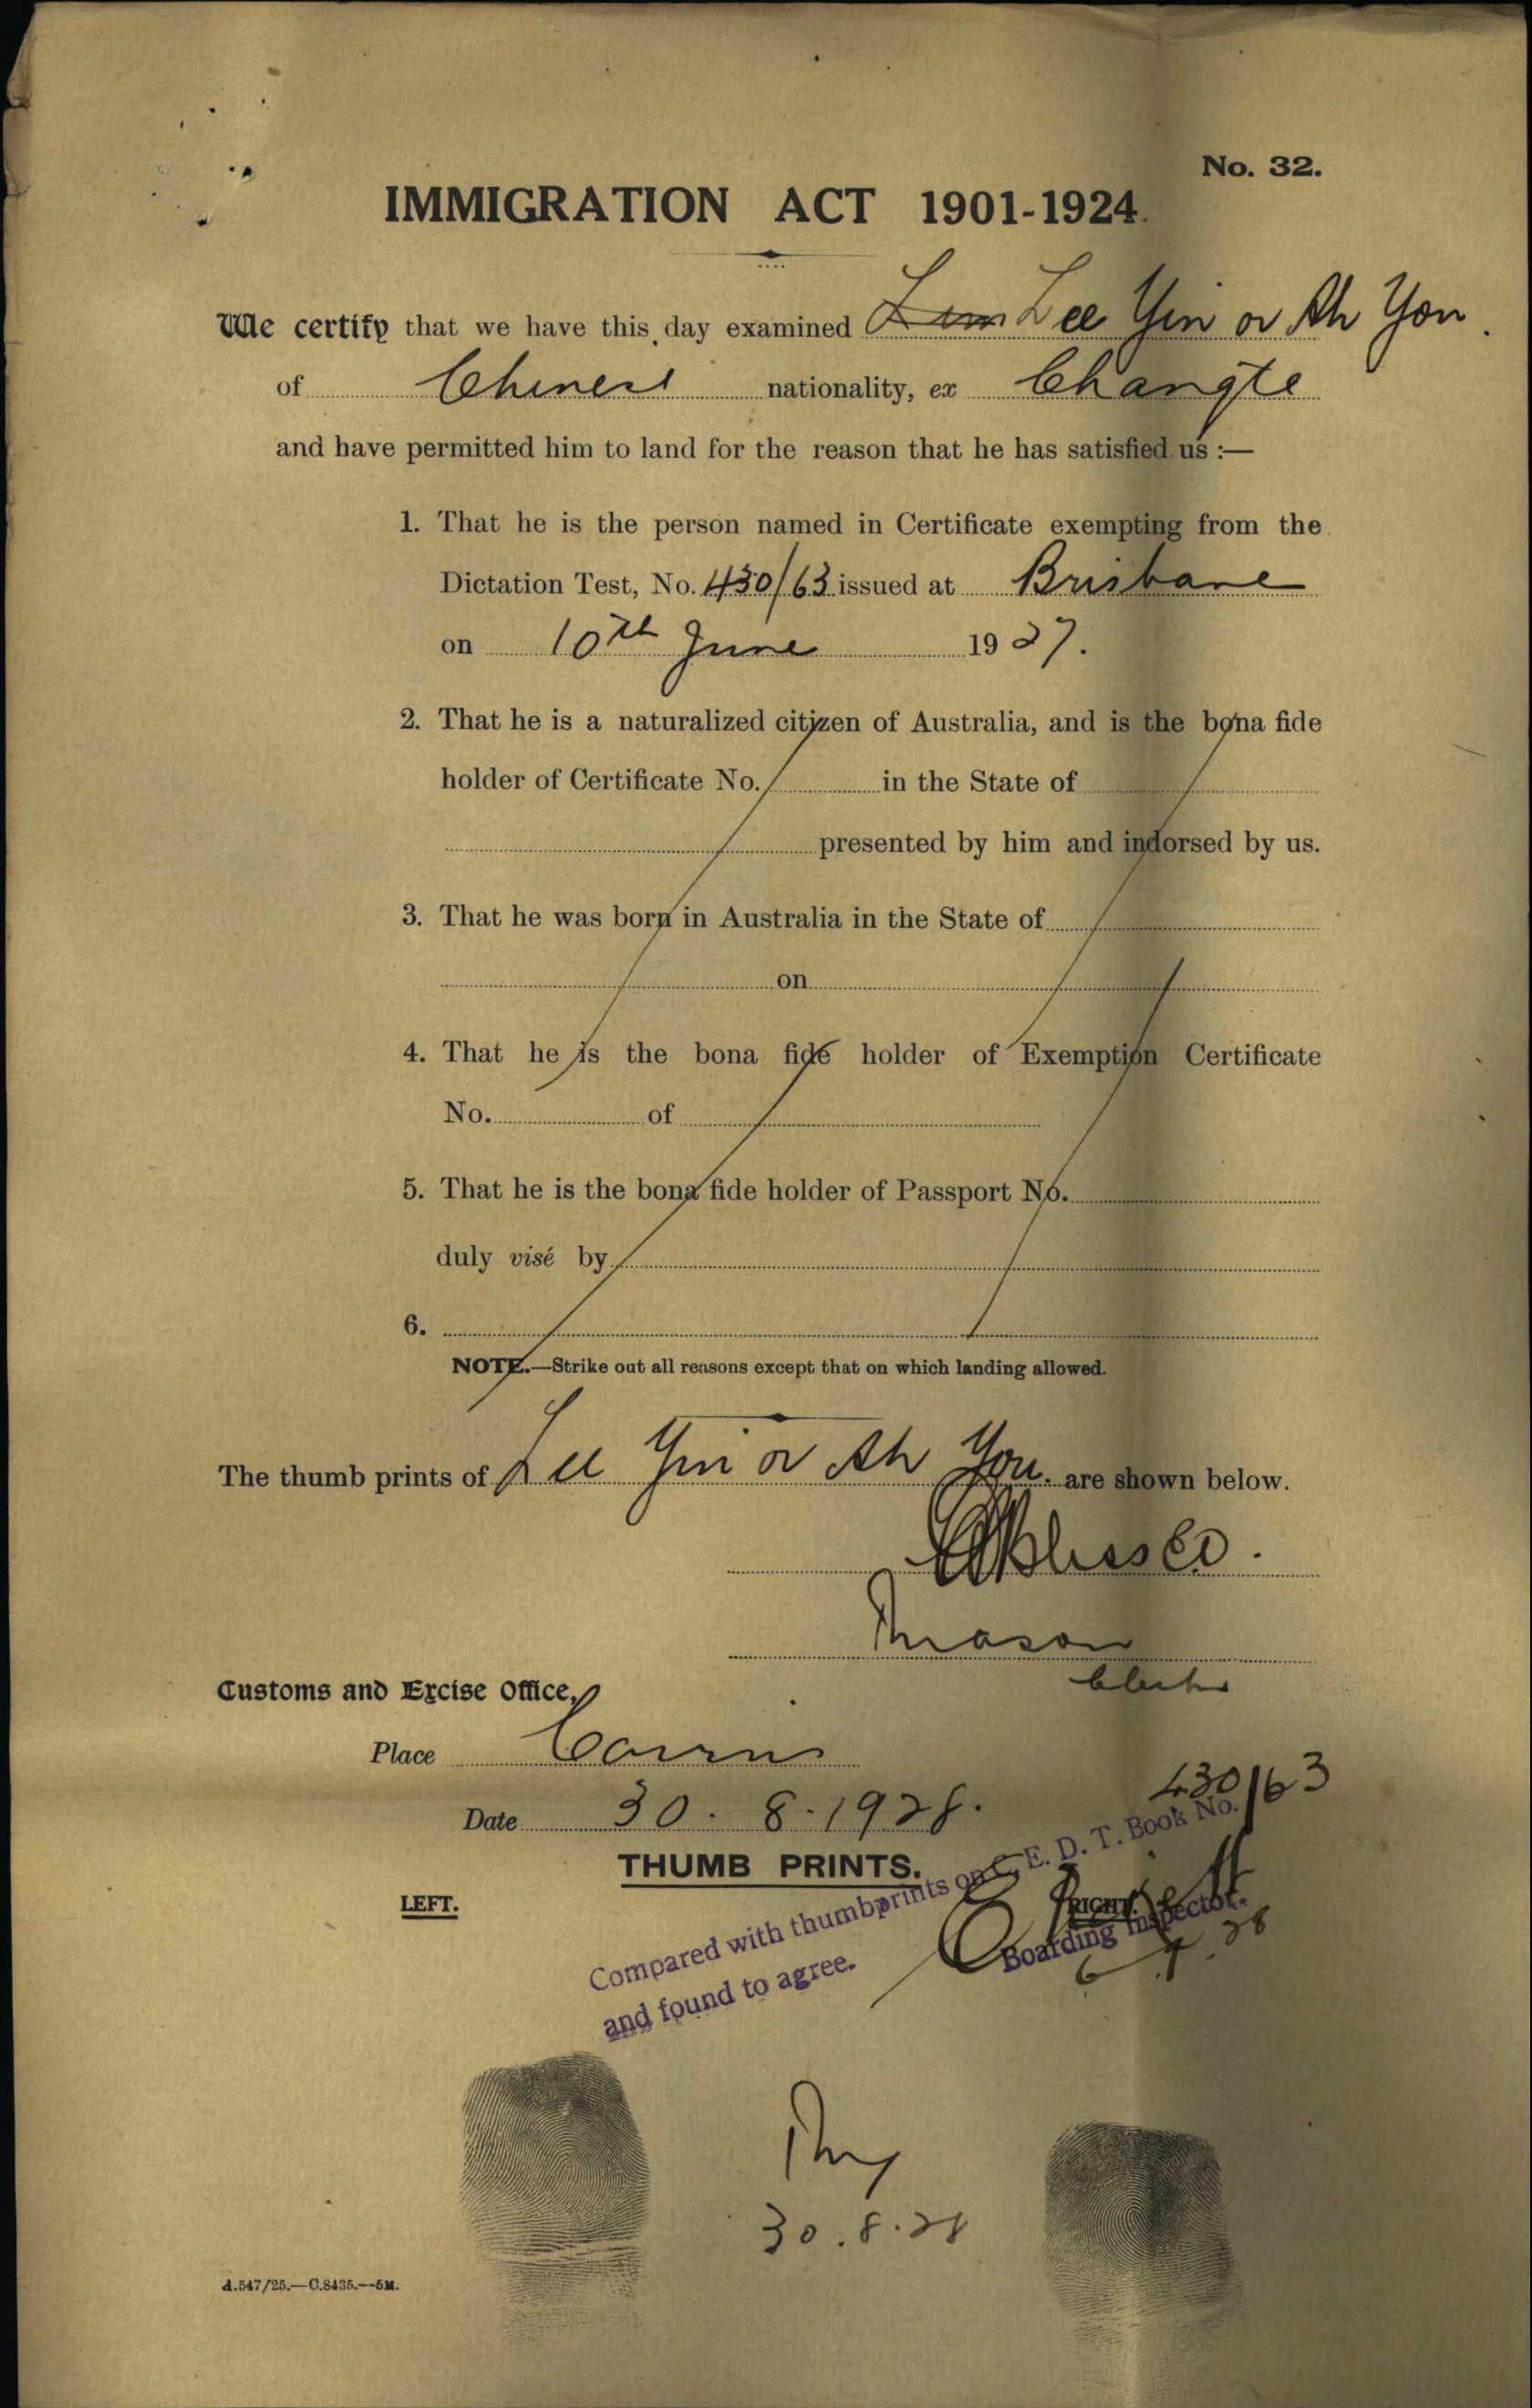 No. 32.
IMMIGRATION ACT 1901-1924.
We certify that we have this day examined Lim Lee Yin or Ah You.
of Chinese nationality, ex Changte
and have permitted him to land for the reason that he has satisfied us :—
1. That he is the person named in Certificate exempting from the
Dictation Test, No. 430/63 issued at Brisbane
on 10th June 1927.
2. That he is a naturalized citizen of Australia, and is the bona fide
holder of Certificate No. in the State of
presented by him and indorsed by us.
3. That he was born in Australia in the State of
on
4. That he is the bona fide holder of Exemption Certificate
No. of
5. That he is the bona fide holder of Passport No.
duly visé by
6.
NOTE.—Strike out all reasons except that on which landing allowed.
The thumb prints of Lee Yin or Ah You. are shown below.
Mason
Customs and Excise Office,
Place Cairns
Date 30. 8. 1928.
430/63
THUMB PRINTS.
LEFT.
RIGHT.
Compared with thumbprints on C. E. D. T. Book No.
and found to agree.
Boarding Inspector.
30.8.28
A.547/25.—C.8435.—5M.